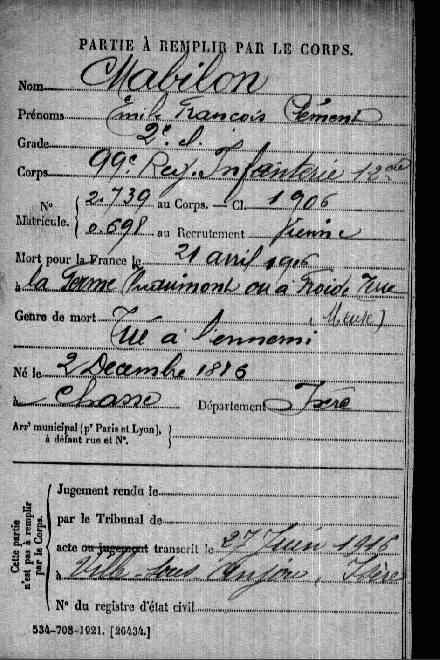 PARTIE À REMPLIR PAR LE CORPS.
Nom Mabilon
Prénoms Émile François Clément
Grade 2e cl.
Corps 99e Reg. Infanterie 12
No Matricule. 2.739 au Corps. — Cl. 1906
0.698 au Recrutement Vienne
Mort pour la France le 21 avril 1916
à la Ferme ou à Froide Terre
(Meuse)
Genre de mort Tué à l'ennemi
Né le 2 Décembre 1886
à Chasse Département Isère
Arrt municipal (pr Paris et Lyon), à défaut rue et No.
Cette partie n'est pas à remplir par le Corps.
Jugement rendu le
par le Tribunal de
acte ou jugement transcrit le 27 Juin 1916
à Ville sous Anjou, Isère
No du registre d'état civil
534-708-1921. [26434.]